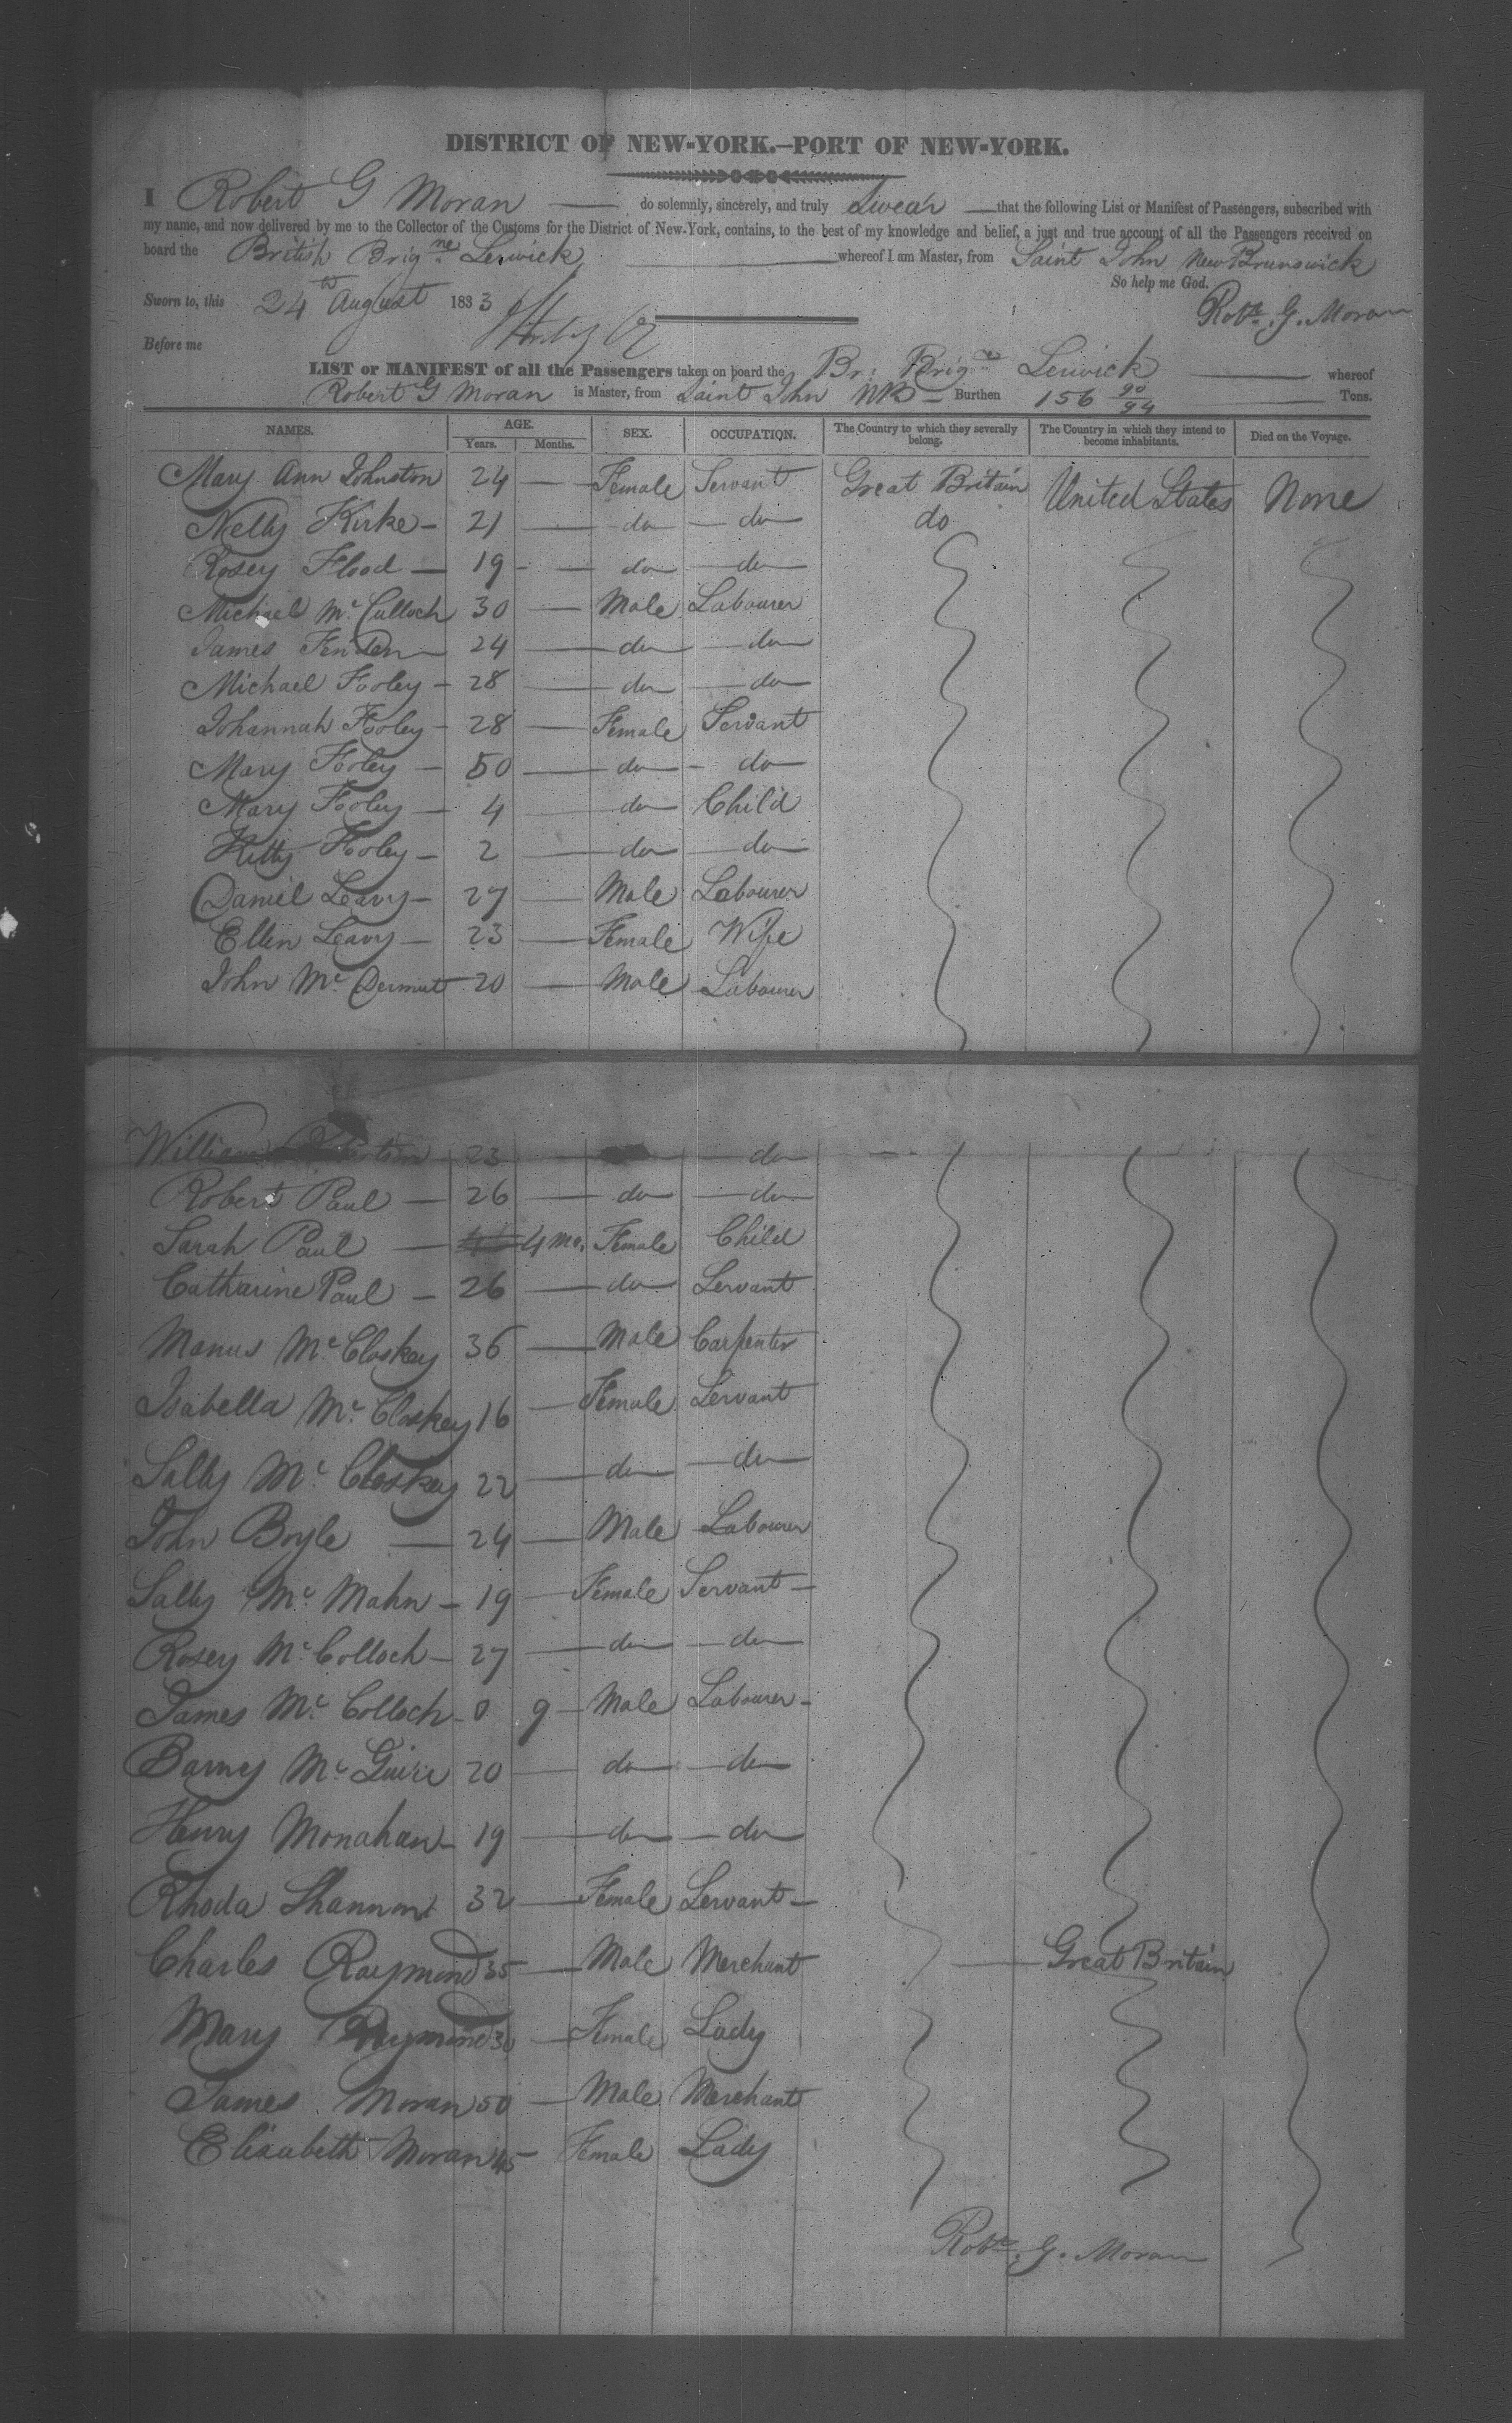 DISTRICT OF NEW-YORK.—PORT OF NEW-YORK.
I Robert G Moran — do solemnly, sincerely, and truly Swear —that the following List or Manifest of Passengers, subscribed with
my name, and now delivered by me to the Collector of the Customs for the District of New-York, contains, to the best of my knowledge and belief, a just and true account of all the Passengers received on
board the British Brigne Lerwick — whereof I am Master, from Saint John New Brunswick
So help me God.
Sworn to, this 24th August 1833
Robt. G. Moran
Before me
LIST or MANIFEST of all the Passengers taken on board the Br: Brigne Lerwick — whereof
Robert G Moran is Master, from Saint John NB — Burthen 156 90/94 — Tons.
NAMES. AGE. Years. Months. SEX. OCCUPATION. The Country to which they severally belong. The Country in which they intend to become inhabitants. Died on the Voyage.
Mary Ann Johnston 24 — Female Servant Great Britain United States None
Nelly Kirke — 21 — do — do do
Rosey Flood — 19 - — do — do
Michael Mc. Culloch 30 — Male Labourer
James — 24 — do — do
Michael Fooley — 28 — do — do
Johannah Fooley — 28 — Female Servant
Mary Fooley — 50 — do - do
Mary Fooley — 4 — do Child
Kitty Fooley — 2 — do — do
Daniel Leavy — 27 — Male Labourer
Ellen Leavy — 23 — Female Wife
John Mc. Dermut 20 — Male Labourer
William 23 — do
Robert Paul — 26 — do — do
Sarah Paul — 4 mo. Female Child
Catharine Paul — 26 — do Servant
Manus Mc. Closkey 36 — Male Carpenter
Isabella Mc. Closkey 16 — Female Servant
Sally Mc. Closkey 22 — do — do
John Boyle — 24 — Male Labourer
Sally Mc. Mahn — 19 — Female Servant —
Rosey Mc. Colloch — 27 — do — do
James Mc. Colloch - 0 9 — Male Labourer -
Barney Mc. Guire 20 — do — do
Henry Monahan — 19 — do — do
Rhoda Shannon 32 — Female Servant —
Charles Raymond 35 — Male Merchant — Great Britain
Mary Raymond 30 — Female Lady
James Moran 50 — Male Merchant
Elisabeth Moran 45 — Female Lady
Robt. G. Moran